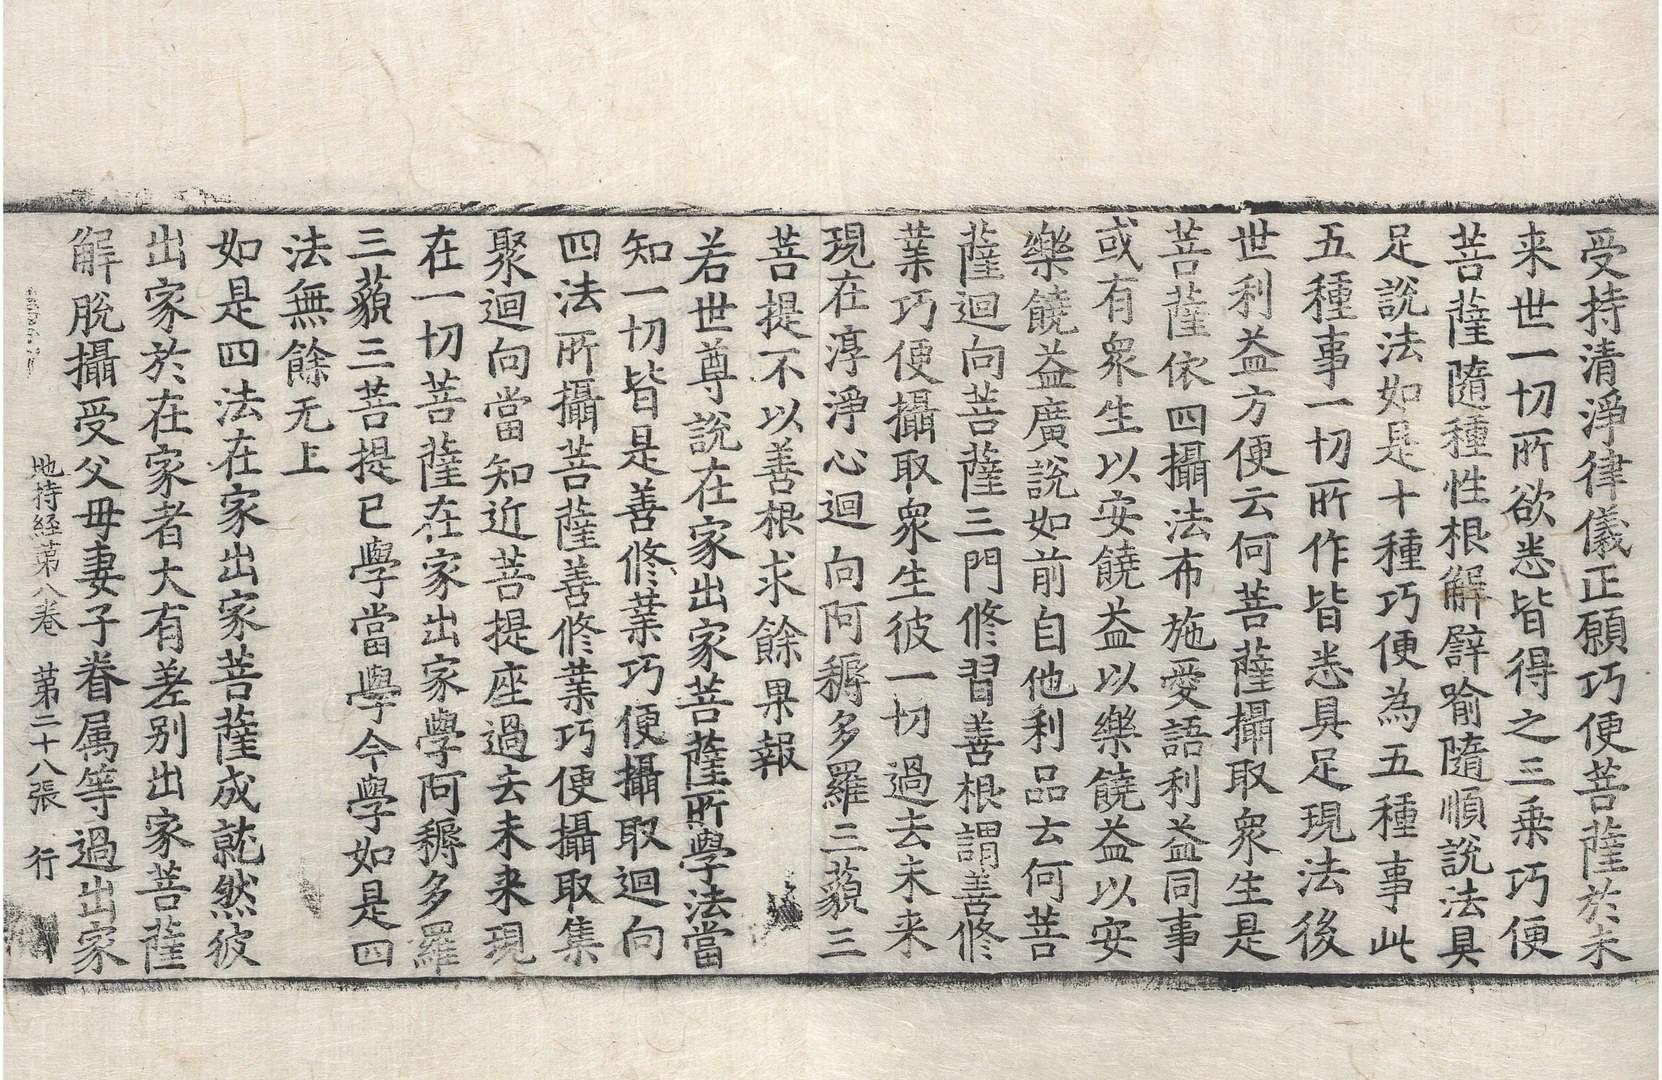 受持清淨律儀正願巧便菩薩於未
来世一切所欲悉皆得之三乗巧便
菩薩隨種性根解譬喻隨順說法具
足說法如是十種巧便為五種事此
五種事一切所作皆悉具足現法後
世利益方便云何菩薩攝取衆生是
菩薩依四攝法布施愛語利益同事
或有衆生以安饒益以樂饒益以安
樂饒益廣說如前自他利品云何菩
薩迴向菩薩三門修習善根謂善修
業巧便攝取衆生彼一切過去未来
現在淳淨心迴向阿耨多羅三藐三
菩提不以善根求餘果報
若世尊說在家出家菩薩所學法當
知一切皆是善修業巧便攝取迴向
四法所攝菩薩善修業巧便攝取集
聚迴向當知近菩提座過去未来現
在一切菩薩在家出家學阿耨多羅
三藐三菩提已學當學今學如是四
法無餘无上
如是四法在家出家菩薩成就然彼
出家於在家者大有差别出家菩薩
解脫攝受父母妻子眷属等過出家
地持經第八卷　第二十八張　行